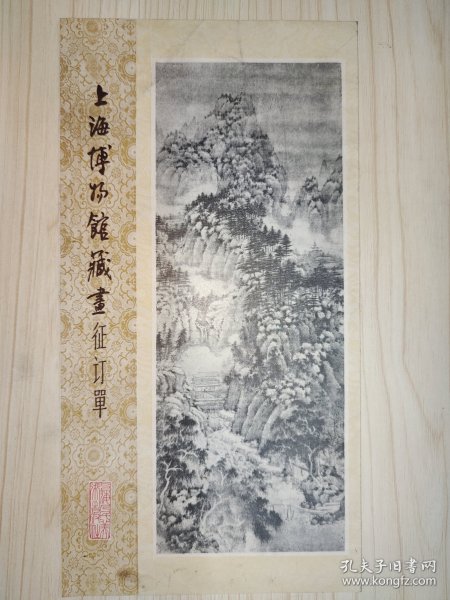 上海博物館藏畫征订單
孔夫子旧书网
www.kongfz.com